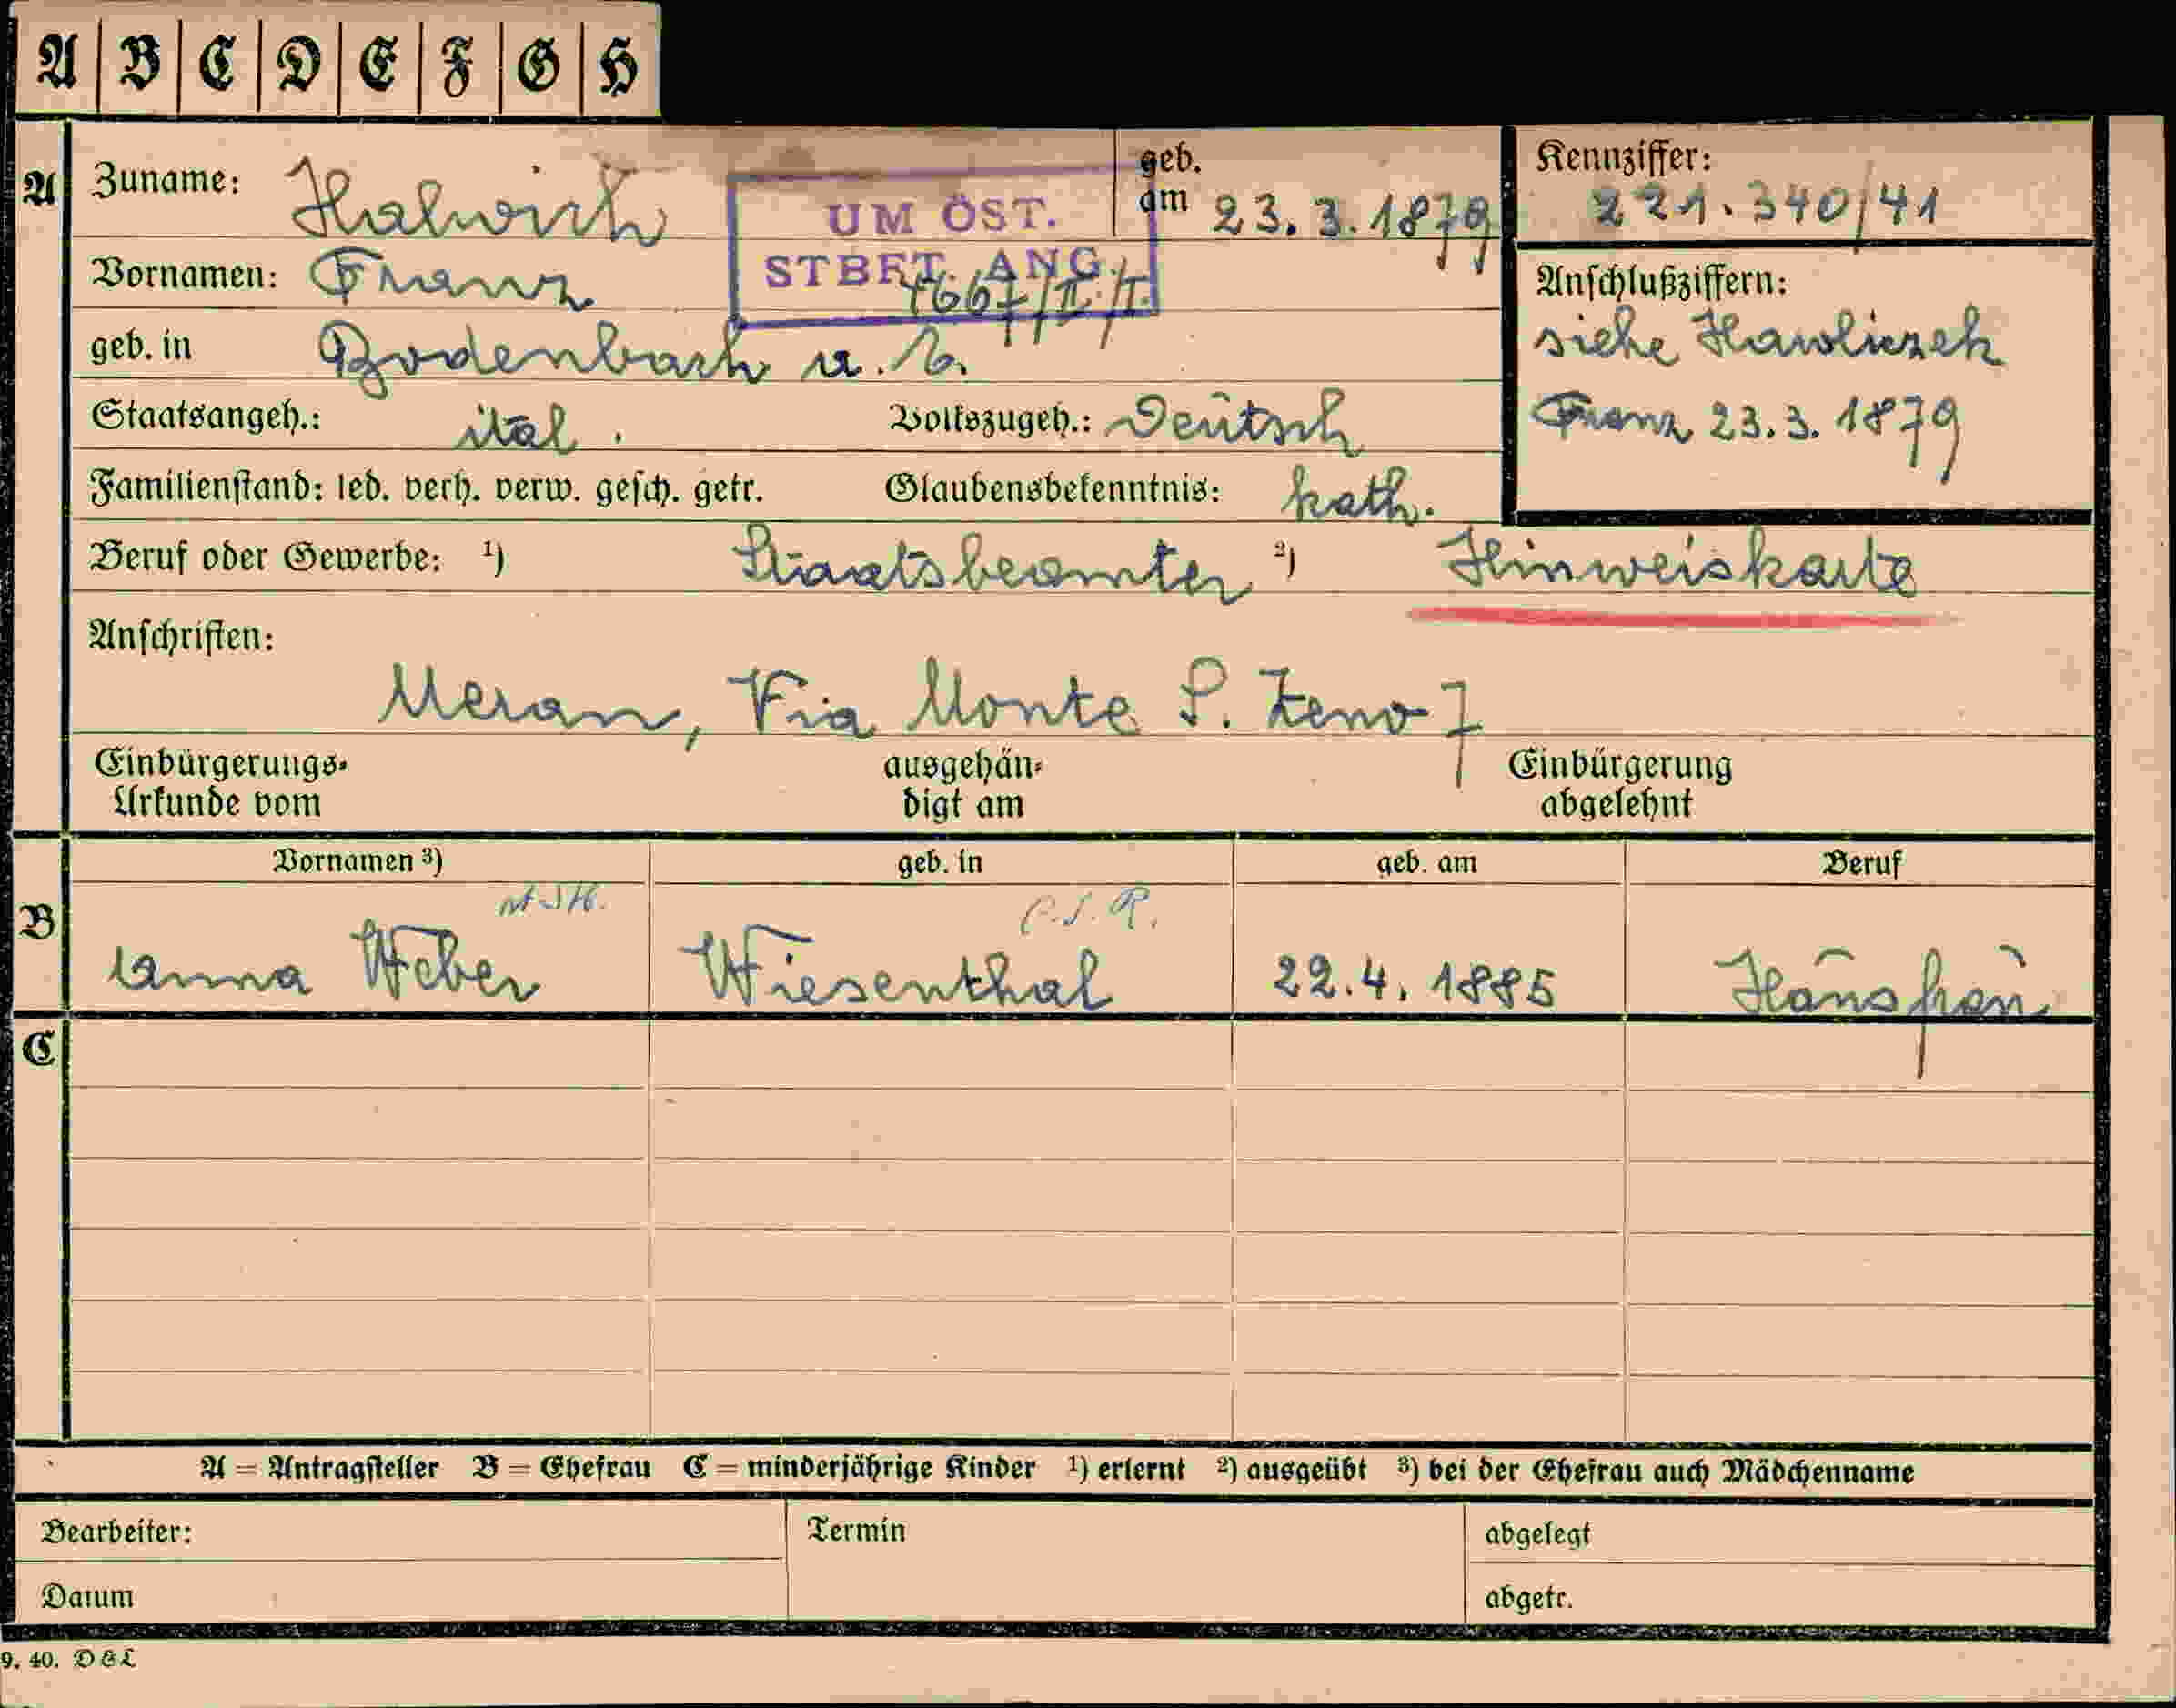 A B C D E F G H
A Zuname: Halwich geb. am 23.3.1879 Kennziffer: 221.340/41
UM ÖST.
STBFT. ANG.
Vornamen: Franz 4667/II/I
Anschlußziffern:
siehe Hawliczek
Franz 23.3.1879
geb. in Bodenbach a. E.
Staatsangeh.: ital. Volkszugeh.: Deutsch
Familienstand: led. verh. verw. gesch. getr. Glaubensbekenntnis: kath.
Beruf oder Gewerbe: ¹) Staatsbeamter ²) Hinweiskarte
Anschriften:
Meran, Via Monte S. Zeno 7
Einbürgerungs-Urkunde vom ausgehän-digt am Einbürgerung abgelehnt
Vornamen ³) geb. in geb. am Beruf
C.S.R.
B Anna Weber Wiesenthal 22.4.1885 Hausfrau
C
A = Antragsteller B = Ehefrau C = minderjährige Kinder ¹) erlernt ²) ausgeübt ³) bei der Ehefrau auch Mädchenname
Bearbeiter: Termin abgelegt
Datum abgetr.
9. 40. D&L